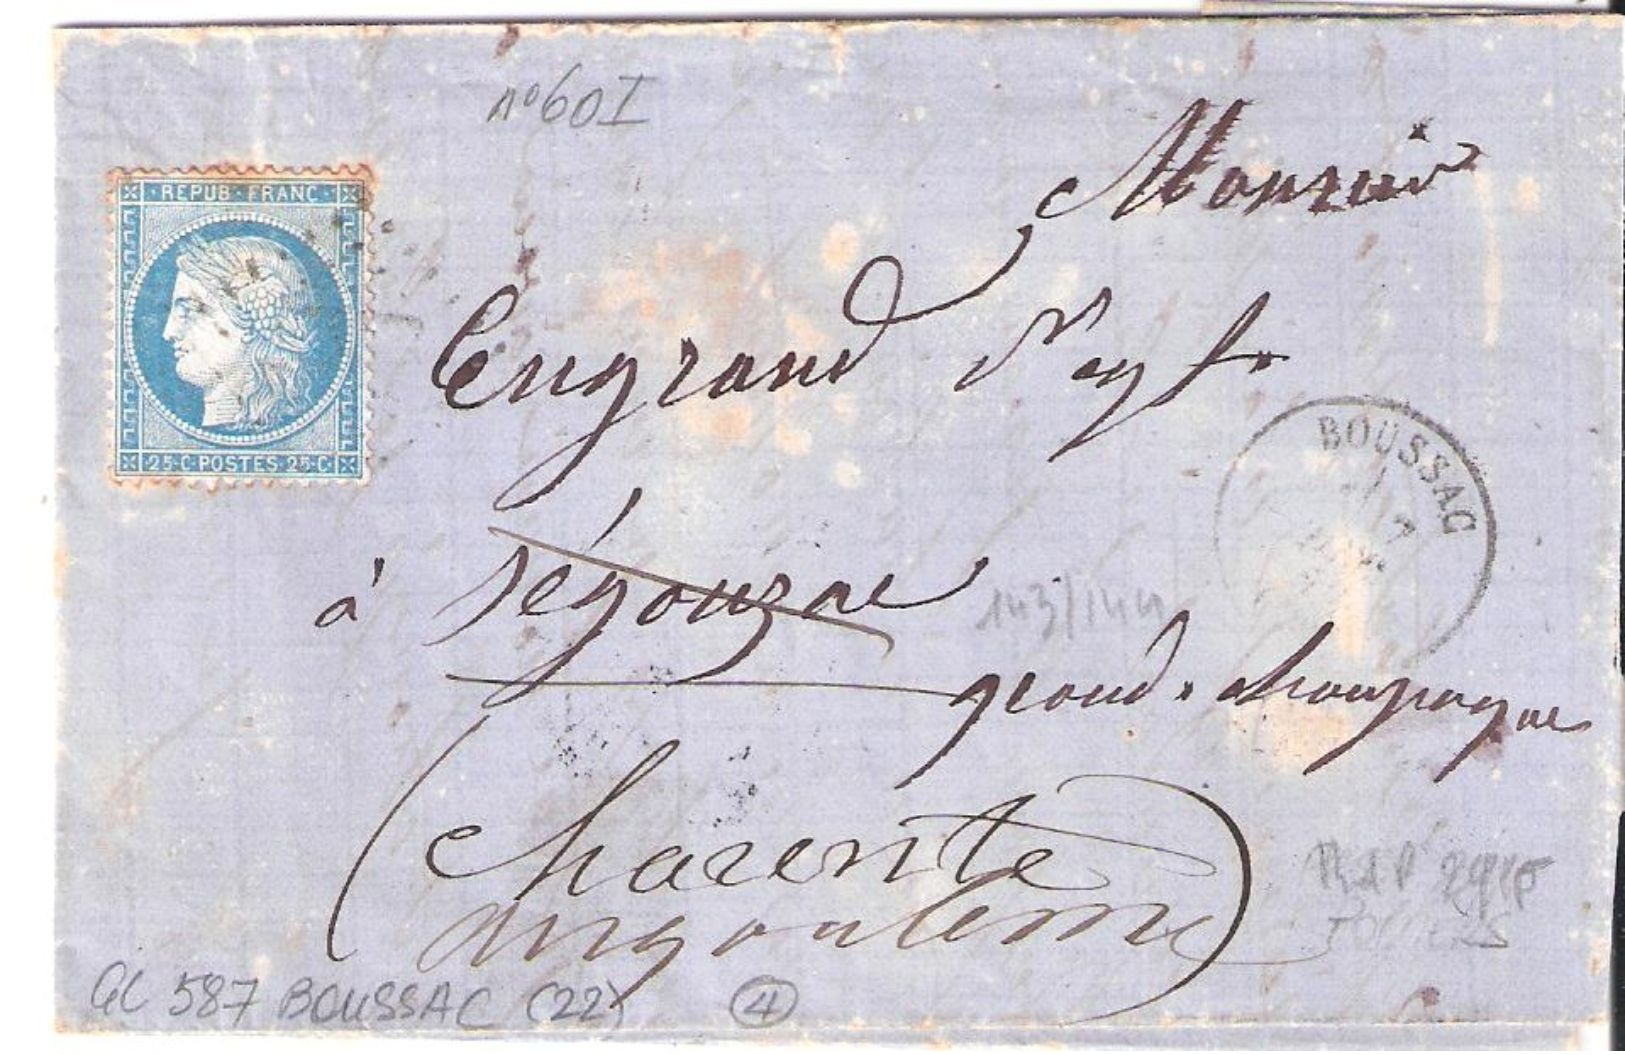 n°60I
REPUB·FRANC
25·C·POSTES·25·C
Monsieur
Engrand
BOUSSAC
à Ségonzac
143/144
grand champagne
(Charente)
Angoulême
2915
GC 587 BOUSSAC (22) 4